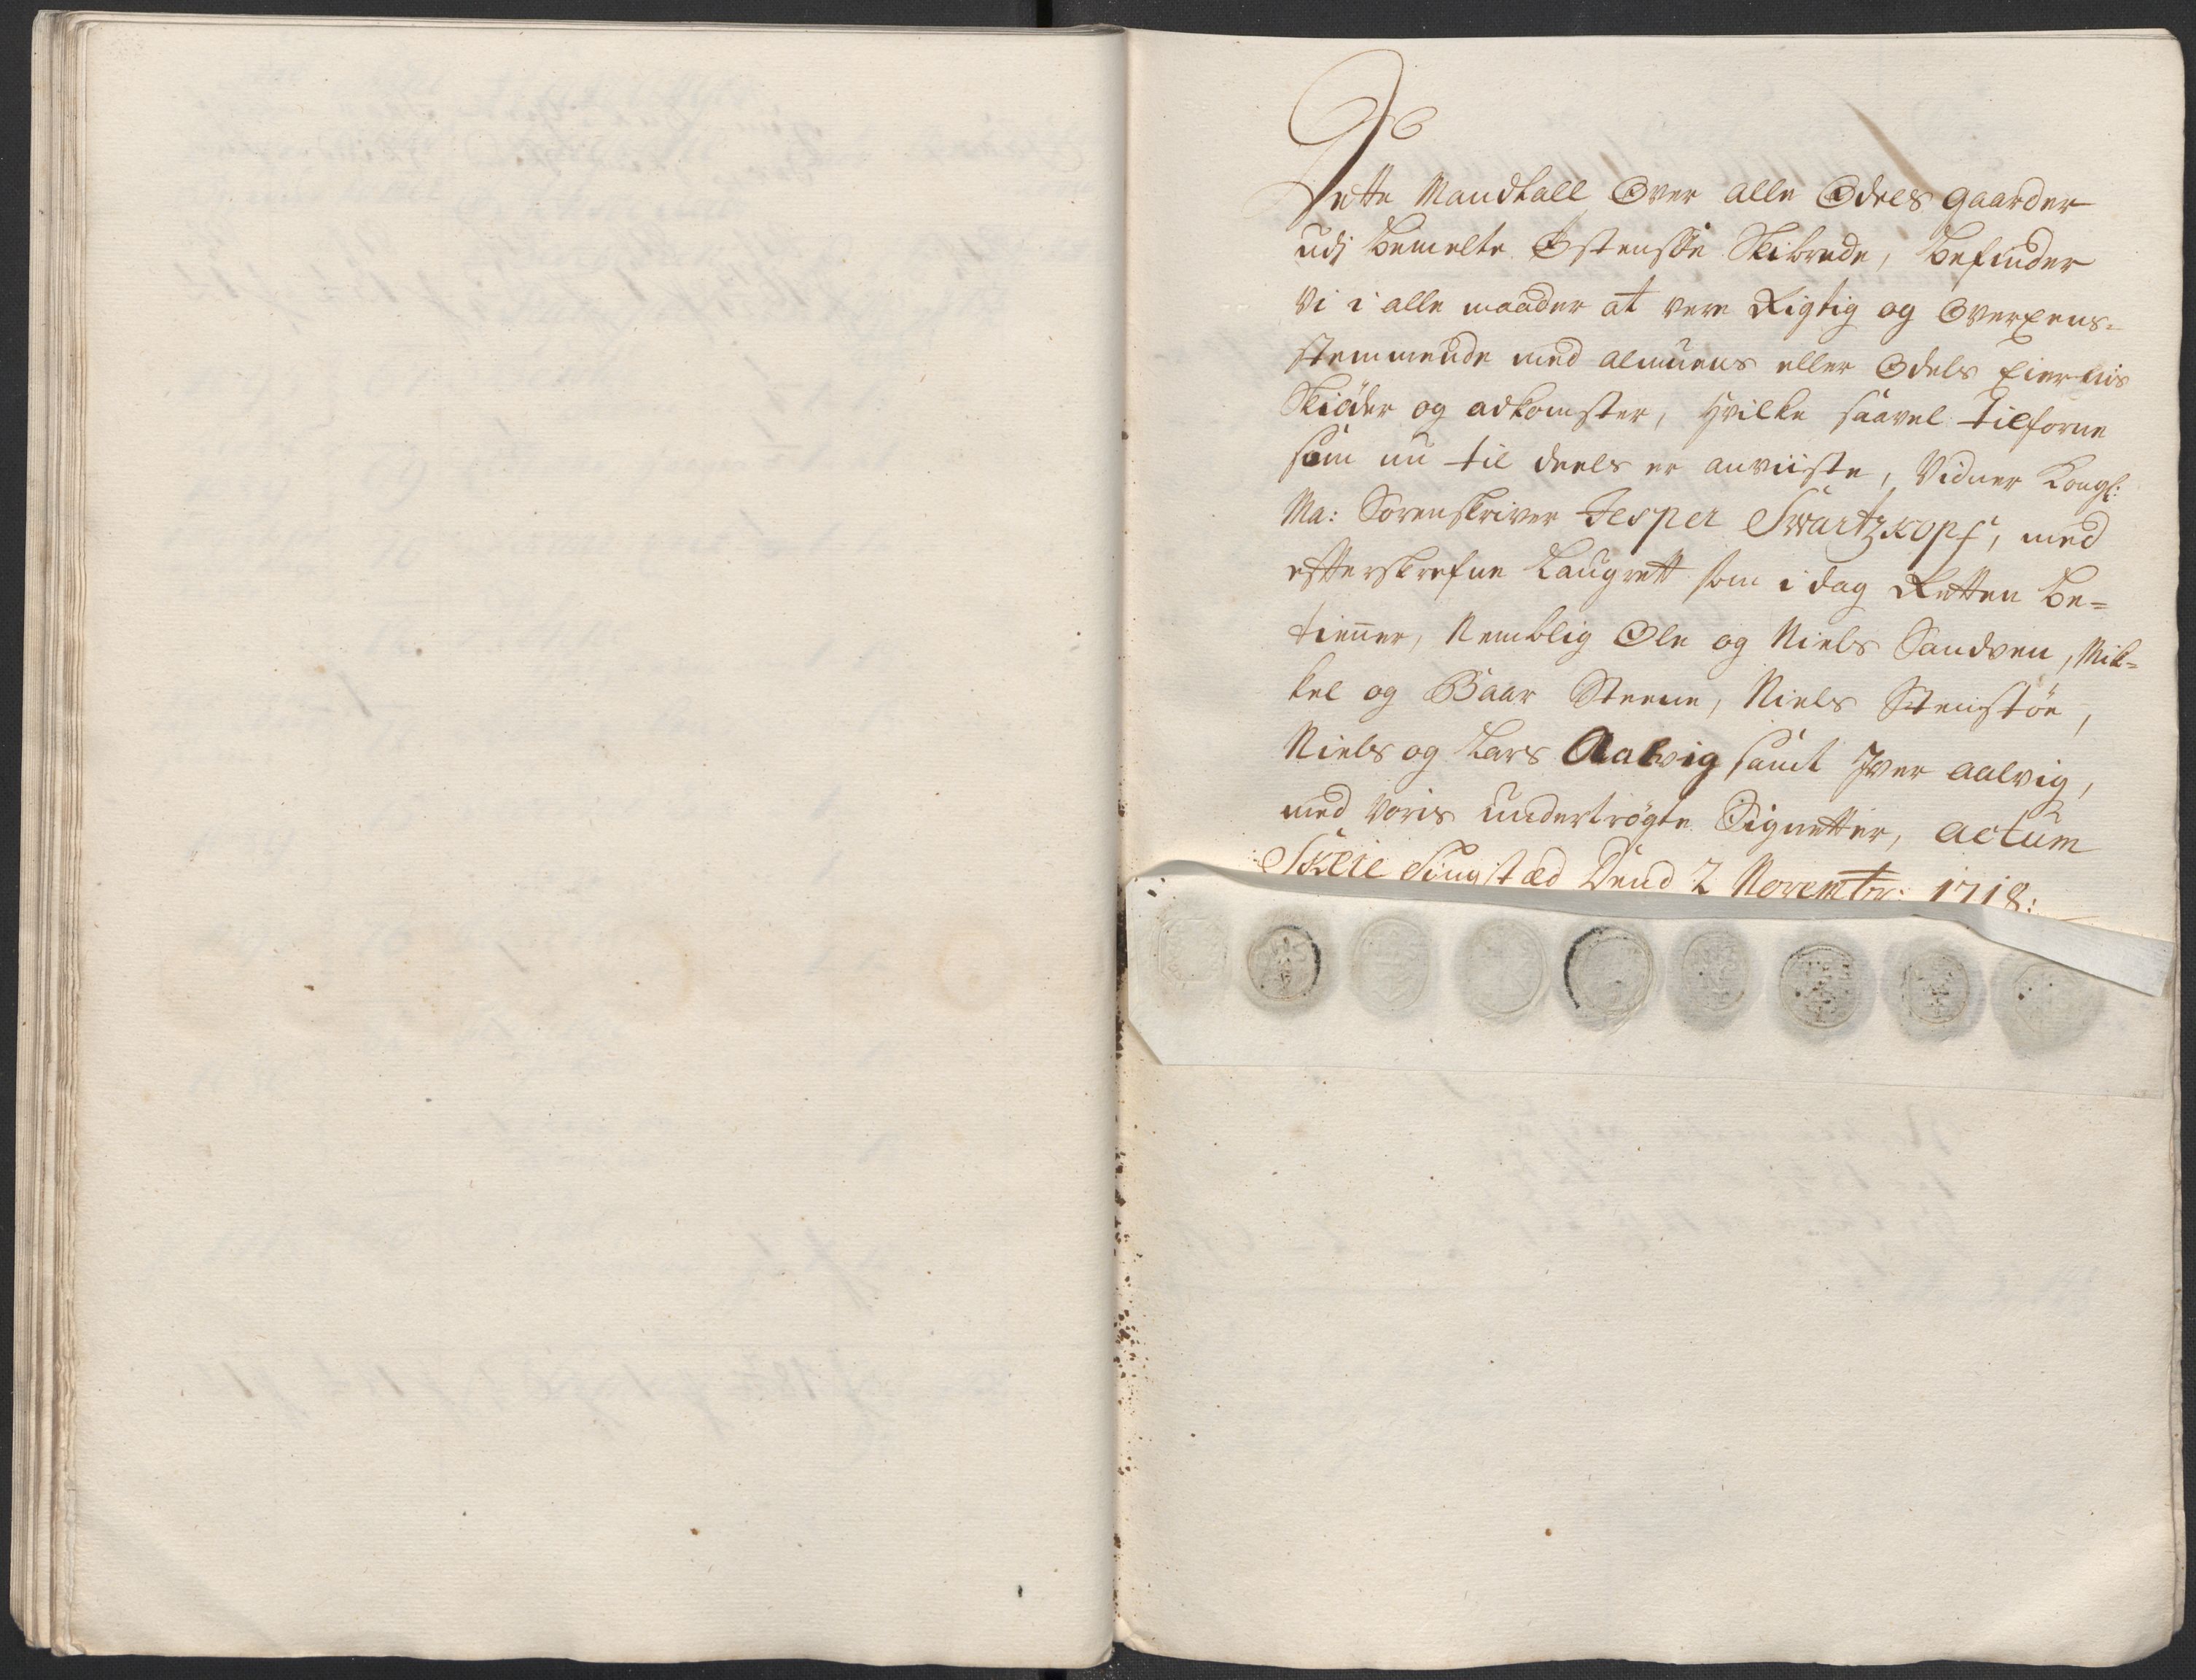 Dette Mandtall Over alle Odels gaarder
udj bemelte Østensøe Skibrede, befinder
vi i alle maader at vere Rigtig og Overeens-
stemmende med almuens eller Odels Eiernis
Skiøder og adkomster, hvilke saavel tilforne
som nu til deels er anviiste, Vidner Kongl:
Ma: Sorenskriver Jesper Swartzkopf, med
effterskrefne Laugrett som i dag Retten be-
tiener, Nemblig Ole og Niels Sandven, Mik-
kel og Baar Steene, Niels Stenstøe,
Niels og Lars Aalvig samt Iver Aalvig,
med voris undertrøgte Signetter, actum
Skeie Tingstæd Dend 2 Novembr: 1718: